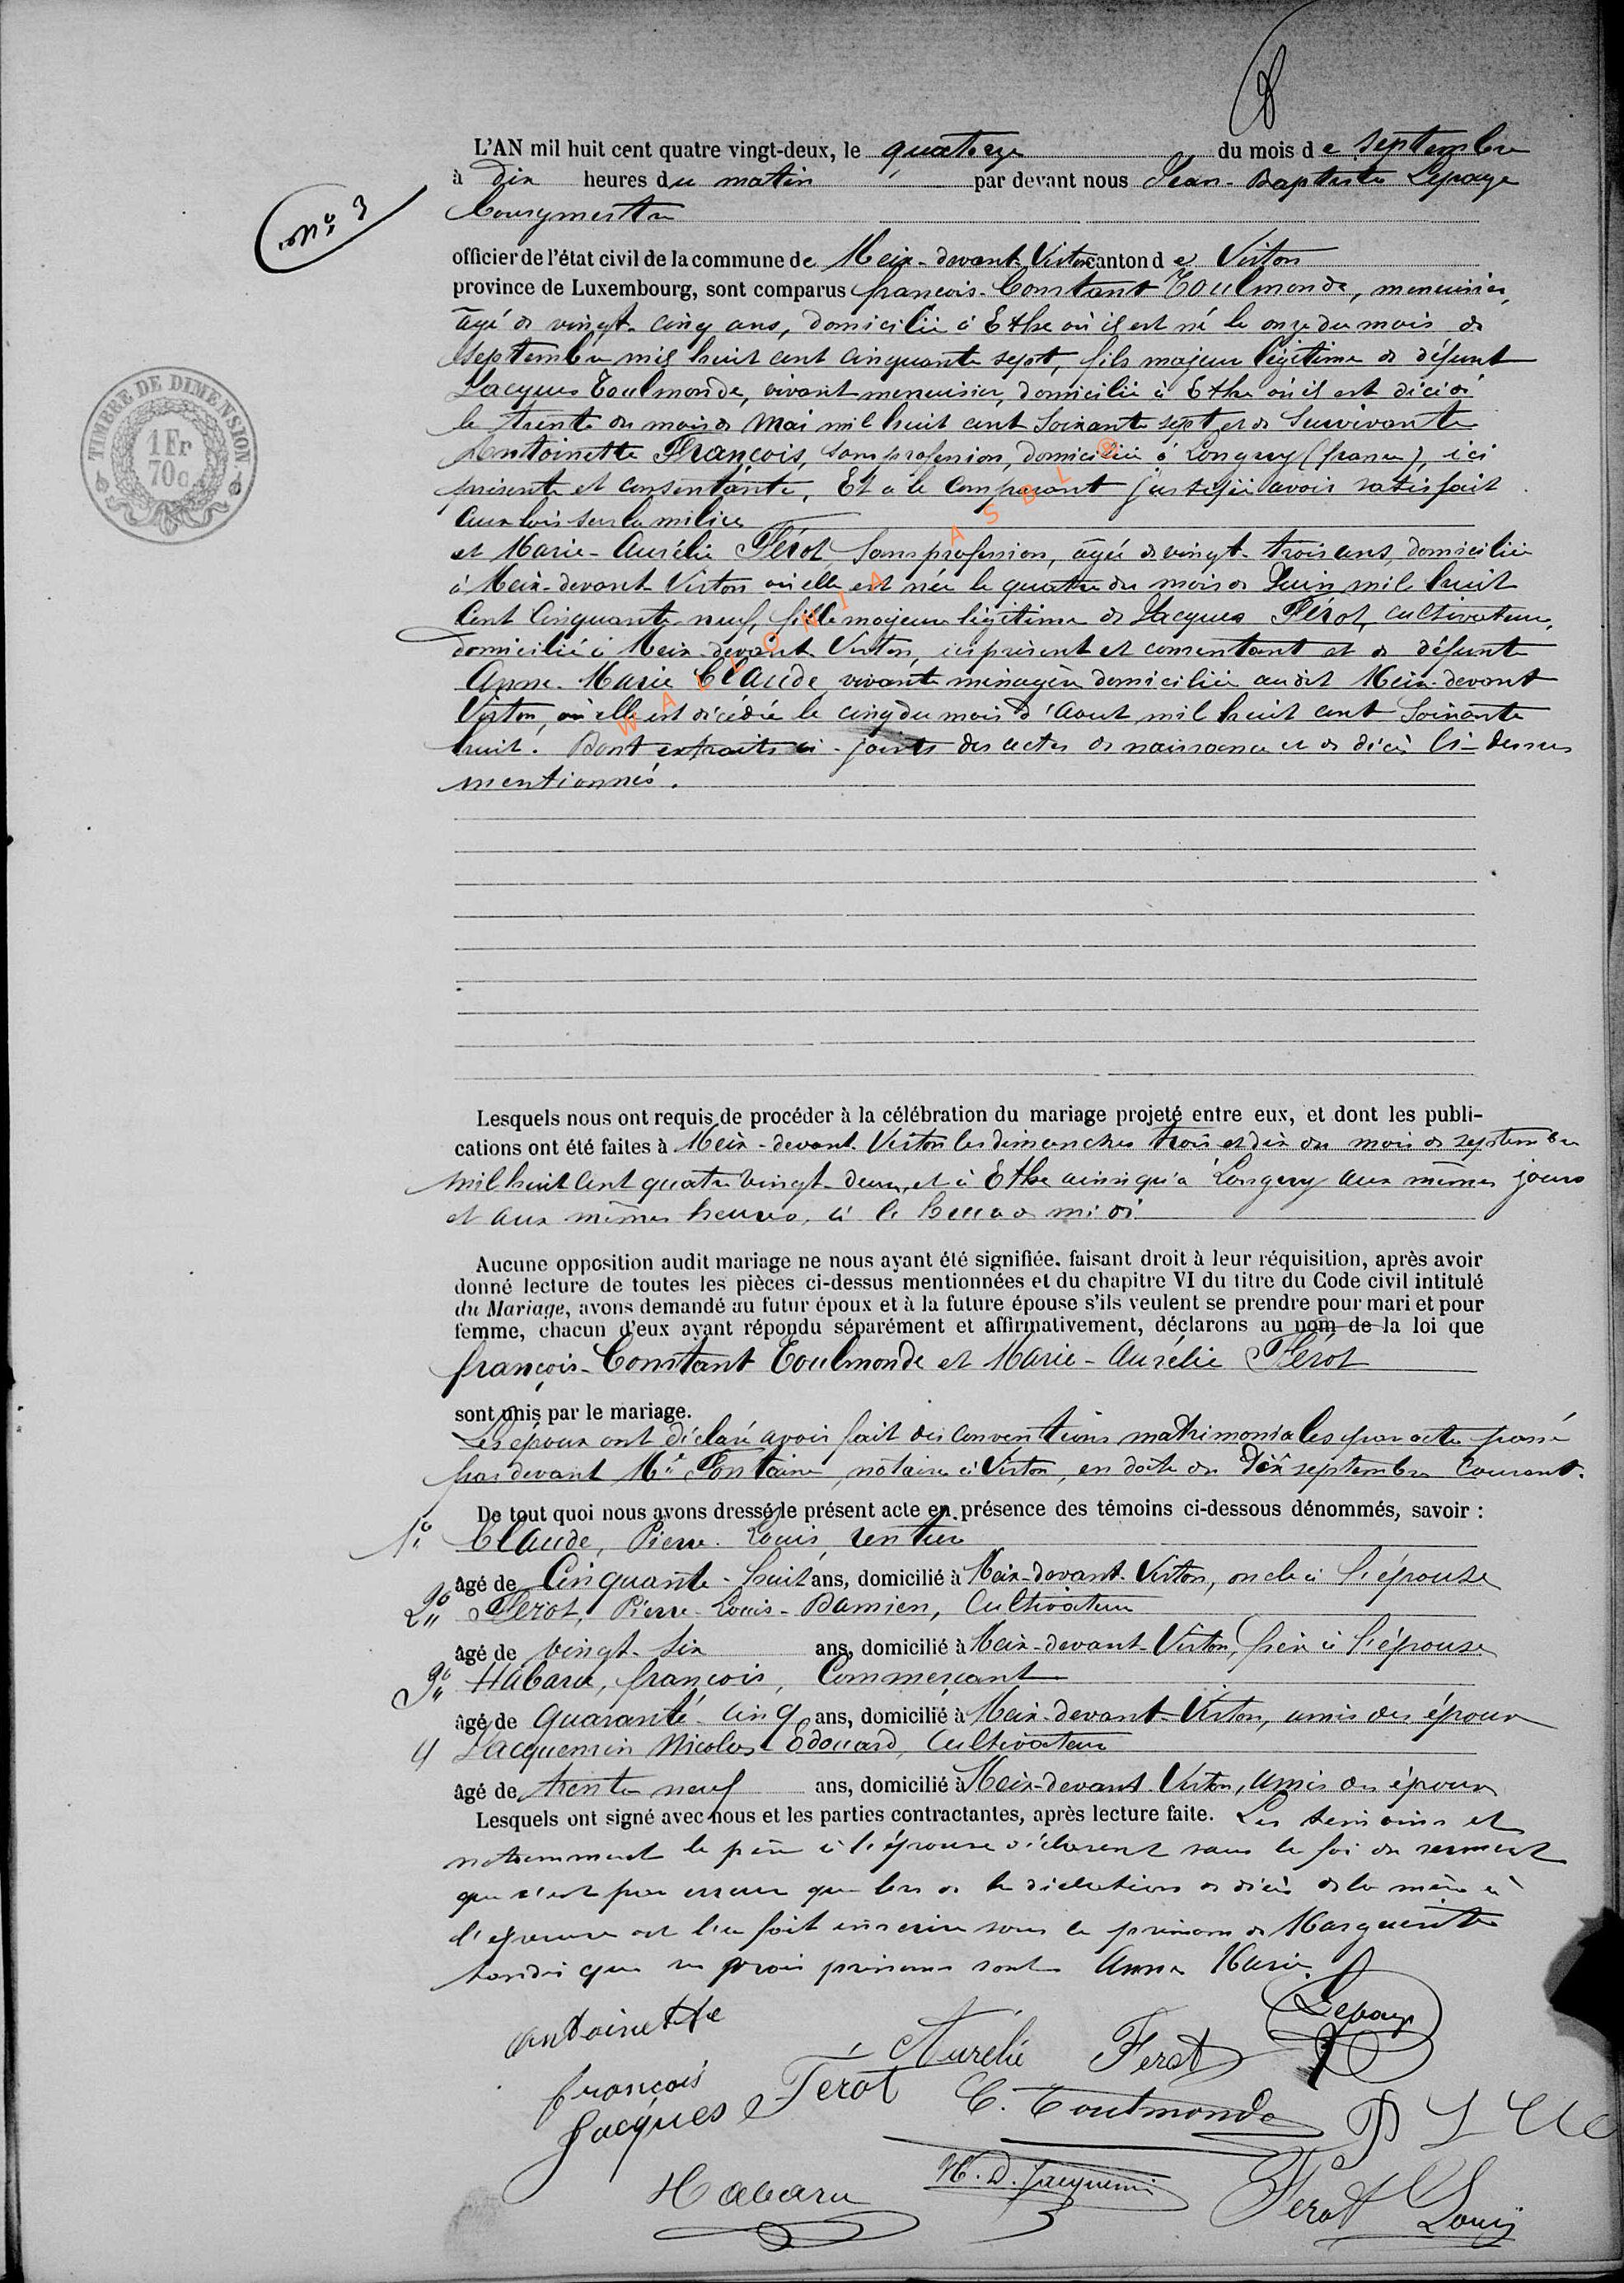 8
L'AN mil huit cent quatre vingt-deux, le quatorze du mois de septembre
à dix heures du matin par devant nous Jean-Baptiste Lepage
Bourgmestre
N° 3
officier de l'état civil de la commune de Meix-devant-Virton canton de Virton
province de Luxembourg, sont comparus françois-Constant Toulmonde, menuisier,
âgé de vingt-cinq ans, domicilié à Ethe où il est né le onze du mois de
septembre mil huit cent cinquante sept, fils majeur légitime de défunt
Jacques Toulmonde, vivant menuisier, domicilié à Ethe où il est décédé
le trente du mois de Mai mil huit cent soixante sept et de survivante
Antoinette François, sans profession, domiciliée à Longwy (france), ici
présente et consentante, Et a le comparant justifié avoir satisfait
aux lois sur la milice
et Marie-Aurélie Férot, sans profession, âgée de vingt-trois ans, domiciliée
à Meix-devant-Virton où elle est née le quatre du mois de Juin mil huit
cent cinquante-neuf, fille majeure légitime de Jacques Férot, cultivateur,
domicilié à Meix-devant-Virton, ici présent et consentant et de défunte
Anne-Marie Claude, vivante ménagère domiciliée audit Meix-devant
Virton, où elle est décédée le cinq du mois d'Aout mil huit cent soixante
huit. Dont extraits ci-joints des actes de naissance et de décès ci-dessus
mentionnés.
WALLONIA ASBL ®
TIMBRE DE DIMENSION
1 Fr
70c
Lesquels nous ont requis de procéder à la célébration du mariage projeté entre eux, et dont les publi-
cations ont été faites à Meix-devant-Virton les dimanches trois et dix du mois de septembre
mil huit cent quatre vingt-deux, et à Ethe ainsi qu'à Longwy aux mêmes jours
et aux mêmes heures, à l'heure de midi
Aucune opposition audit mariage ne nous ayant été signifiée. faisant droit à leur réquisition, après avoir
donné lecture de toutes les pièces ci-dessus mentionnées et du chapitre VI du titre du Code civil intitulé
du Mariage, avons demandé au futur époux et à la future épouse s'ils veulent se prendre pour mari et pour
femme, chacun d'eux ayant répondu séparément et affirmativement, déclarons au nom de la loi que
françois-Constant Toulmonde et Marie-Aurélie Férot
sont unis par le mariage.
Les époux ont déclaré avoir fait des conventions matrimoniales par acte passé
par devant Me Fontaine, notaire à Virton, en date du dix septembre courant.
De tout quoi nous avons dressé le présent acte en présence des témoins ci-dessous dénommés, savoir :
1° Claude, Pierre-Louis, rentier
âgé de Cinquante-huit ans, domicilié à Meix-devant-Virton, oncle à l'épouse
2° Férot, Pierre-Louis-Damien, Cultivateur
âgé de vingt-six ans, domicilié à Meix-devant-Virton, frère à l'épouse
3° Habaru, françois, Commerçant
âgé de Quarante-cinq ans, domicilié à Meix-devant-Virton, amis des époux
4 Jacquemin Nicolas Edouard, Cultivateur
âgé de trente neuf ans, domicilié à Meix-devant-Virton, amis des époux
Lesquels ont signé avec nous et les parties contractantes, après lecture faite. Les témoins et
notamment le père à l'épouse déclarent sous la foi du serment
que c'est par erreur que lors de la déclaration de décès de la mère à
l'épouse on l'a fait inscrire sous le prénom de Marguerite
tandis que ses prénoms sont Anne Marie.
Lepage
Antoinette
françois
Aurélie Ferot
Jacques Férot
C. Toulmonde
P L Cla
Habaru
Jacquemin
Ferot Louis